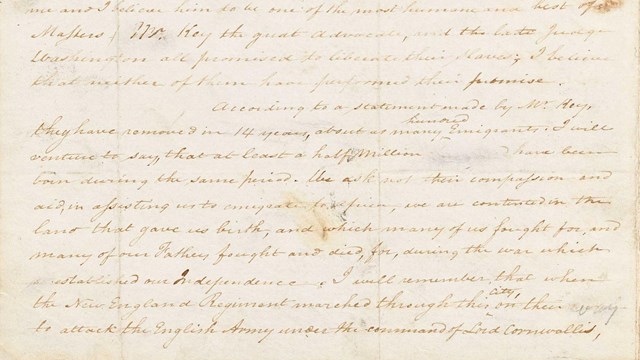 me and I believe him to be one of the most humane and best of
Masters, Mr. Key the great Advocate, and the late Judge
Washington all promised to liberate their slaves; I believe
that neither of them have performed their promise.
According to a statement made by Mr Key,
hundred
they have removed in 14 years, about as many Emigrants. I will
venture to say, that at least a half Million have been
born during the same period. We ask not their compassion and
aid, in assisting us to emigrate to Africa, we are contented in the
land that gave us birth, and which many of us fought for, and
many of our Fathers fought and died, for, during the war which
established our Independence. I well remember, that when
city,
the New England Regiment marched through this on their way
to attack the English Army under the command of Lord Cornwallis,